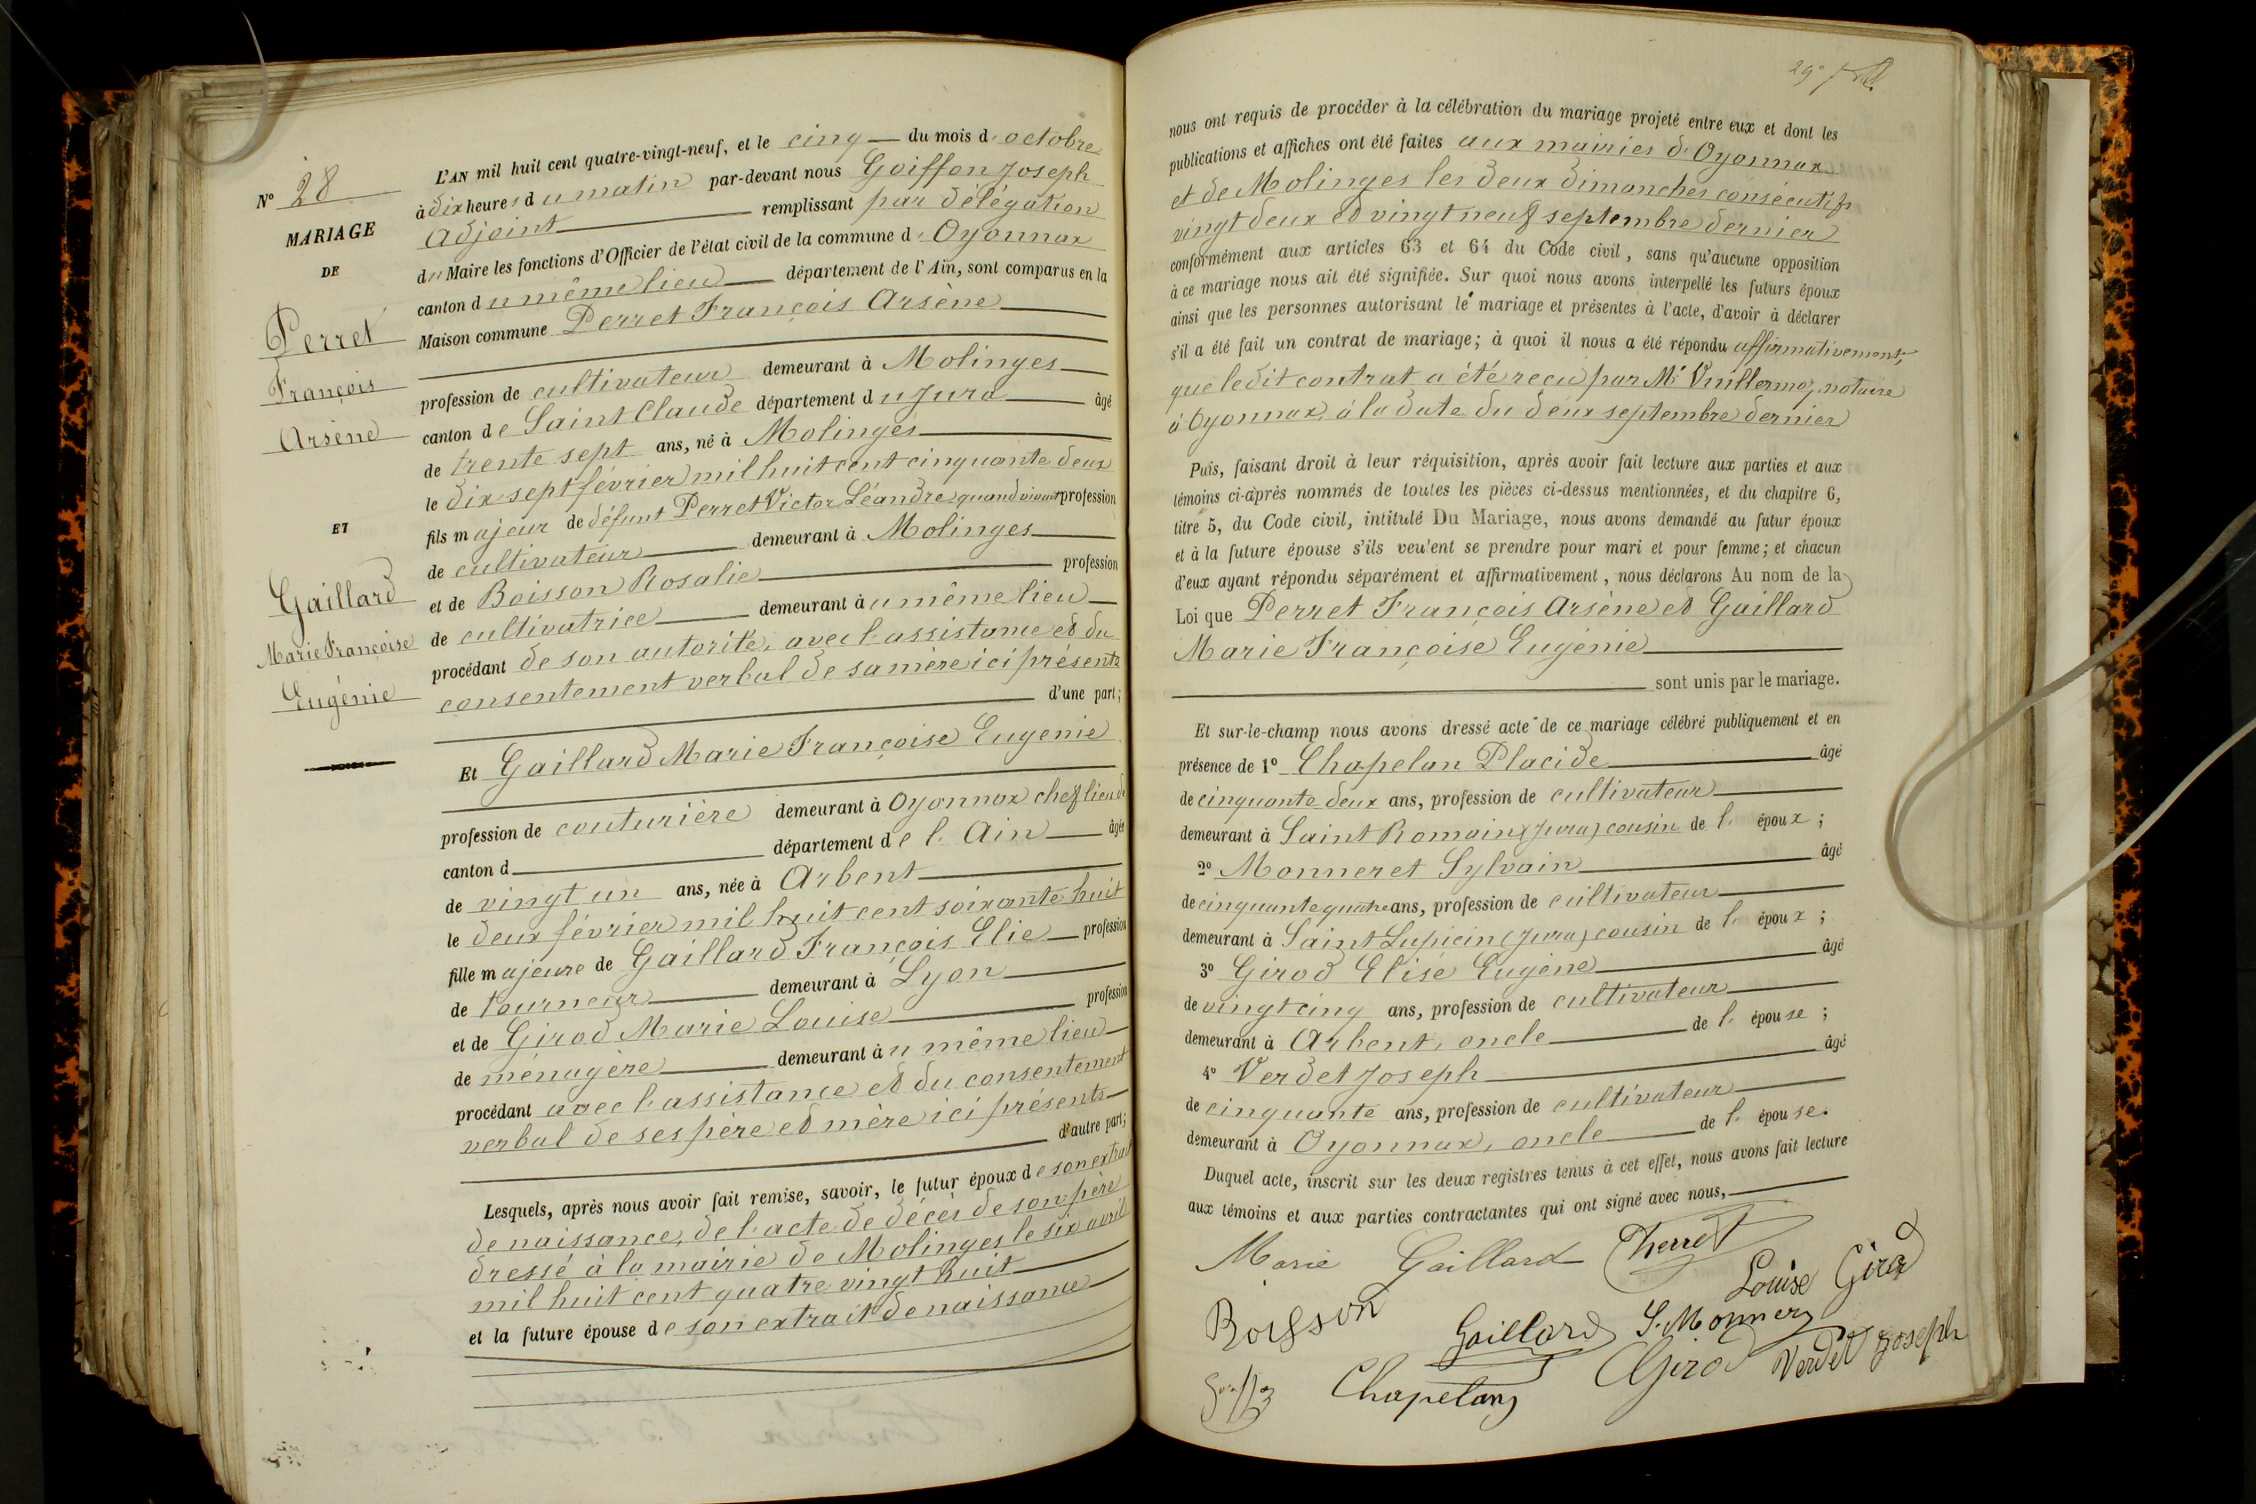 L'AN mil huit cent quatre-vingt-neuf, et le cinq du mois d'octobre
à dix heures du matin par-devant nous Goiffon Joseph
Adjoint remplissant par délégation
du Maire les fonctions d'Officier de l'état civil de la commune d'Oyonnax
canton du même lieu département de l'Ain, sont comparus en la
Maison commune Perret François Arsène
profession de cultivateur demeurant à Molinges
canton de Saint Claude département du Jura âgé
de trente sept ans, né à Molinges
le dix sept février mil huit cent cinquante deux
fils majeur de défunt Perret Victor Léandre quand vivant profession
de cultivateur demeurant à Molinges
et de Boisson Rosalie profession
de cultivatrice demeurant au même lieu
procédant de son autorité, avec l'assistance et du
consentement verbal de sa mère ici présente
d'une part;
Et Gaillard Marie Françoise Eugénie
profession de couturière demeurant à Oyonnax chef lieu de
canton d département de l'Ain âgée
de vingt un ans, née à Arbent
le deux février mil huit cent soixante huit
fille majeure de Gaillard François Elie profession
de tourneur demeurant à Lyon
et de Girod Marie Louise profession
de ménagère demeurant au même lieu
procédant avec l'assistance et du consentement
verbal de ses père et mère ici présents
d'autre part;
Lesquels, après nous avoir fait remise, savoir, le futur époux de son extrait
de naissance, de l'acte de décès de son père
dressé à la mairie de Molinges le six avril
mil huit cent quatre vingt huit
et la future épouse de son extrait de naissance
N° 28
MARIAGE
DE
Perret
François
Arsène
ET
Gaillard
Marie Françoise
Eugénie
29e
nous ont requis de procéder à la célébration du mariage projeté entre eux et dont les
publications et affiches ont été faites aux mairies d'Oyonnax
et de Molinges les deux dimanches consécutifs
vingt deux et vingt neuf septembre dernier
conformément aux articles 63 et 64 du Code civil, sans qu'aucune opposition
à ce mariage nous ait été signifiée. Sur quoi nous avons interpellé les futurs époux
ainsi que les personnes autorisant le mariage et présentes à l'acte, d'avoir à déclarer
s'il a été fait un contrat de mariage; à quoi il nous a été répondu affirmativement,
que ledit contrat a été reçu par Me Vuillermoz, notaire
à Oyonnax, à la date du deux septembre dernier
Puis, faisant droit à leur réquisition, après avoir fait lecture aux parties et aux
témoins ci-après nommés de toutes les pièces ci-dessus mentionnées, et du chapitre 6,
titre 5, du Code civil, intitulé Du Mariage, nous avons demandé au futur époux
et à la future épouse s'ils veulent se prendre pour mari et pour femme; et chacun
d'eux ayant répondu séparément et affirmativement, nous déclarons Au nom de la
Loi que Perret François Arsène et Gaillard
Marie Françoise Eugénie
sont unis par le mariage.
Et sur-le-champ nous avons dressé acte de ce mariage célébré publiquement et en
présence de 1° Chapelan Placide âgé
de cinquante deux ans, profession de cultivateur
demeurant à Saint Romain (Jura) cousin de l'époux;
2° Monneret Sylvain âgé
de cinquante quatre ans, profession de cultivateur
demeurant à Saint Lupicin (Jura) cousin de l'époux;
3° Girod Elisé Eugène âgé
de vingt cinq ans, profession de cultivateur
demeurant à Arbent, oncle de l'épouse;
4° Verdet Joseph âgé
de cinquante ans, profession de cultivateur
demeurant à Oyonnax, oncle de l'épouse.
Duquel acte, inscrit sur les deux registres tenus à cet effet, nous avons fait lecture
aux témoins et aux parties contractantes qui ont signé avec nous,
Marie Gaillard Perret
Louise Girod
Boisson
Gaillard S. Monneret
Chapelan Girod Verdet Joseph